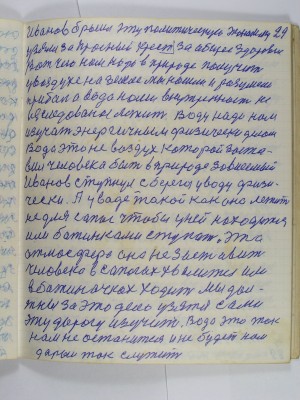 Иванов бросил эту политическую экономику 29
увели за красный крест за общее здоровье
Вот что нам надо в природе получить
у воздухе на земле мы нашли и разумели
прибал а вода наши внутренность не
исследована лежит Воду надо нам
изучать энергичным физическим делом
Вода это не воздух которой заста-
вил человека быть в природе зависимый
Иванов ступнул с берегу у воду физи-
чески. А у воде такой как она лежит
не для сапог чтобы у ней находится
или батинками ступать, Эта
атмосфера она не заставит
человека в сапогах хвалится или
в батиночках ходит Мы дол-
жны за это дело узятся сами
эту дорогу изучит. Вода это так
нам не останится и не будет нам
даром так служить